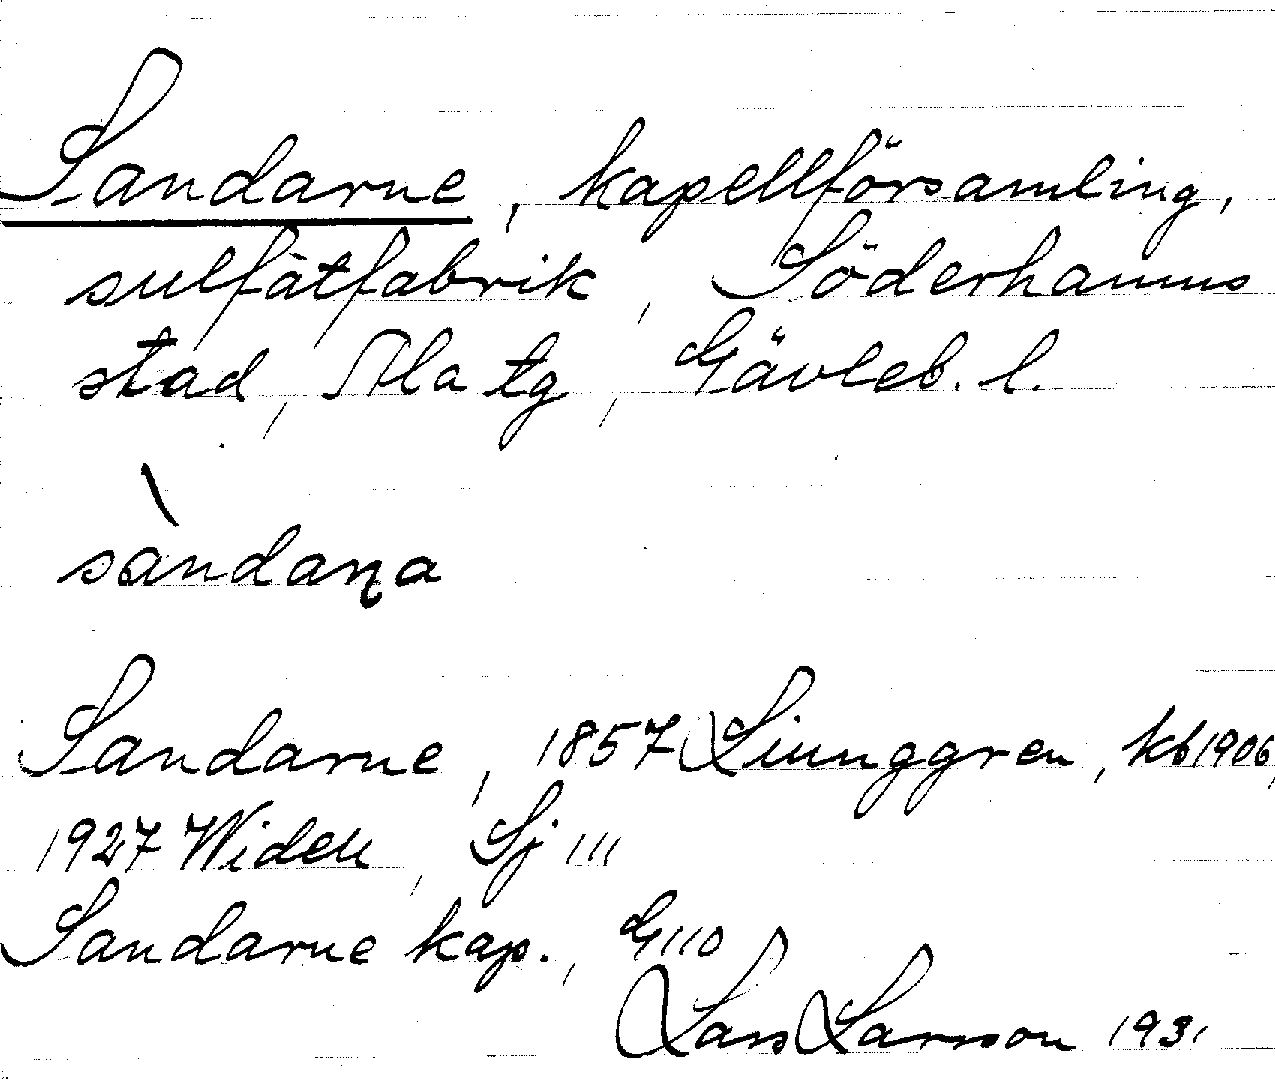 Sandarne, kapellförsamling,
sulfatfabrik, Söderhamns
stad, Ala tg, Gävleb. l.
sàndaṇa
Sandarne, 1857 Ljunggren, kb 1906,
1927 Widell, Sj 111
Sandarne kap., G110
Lars Larsson 1931